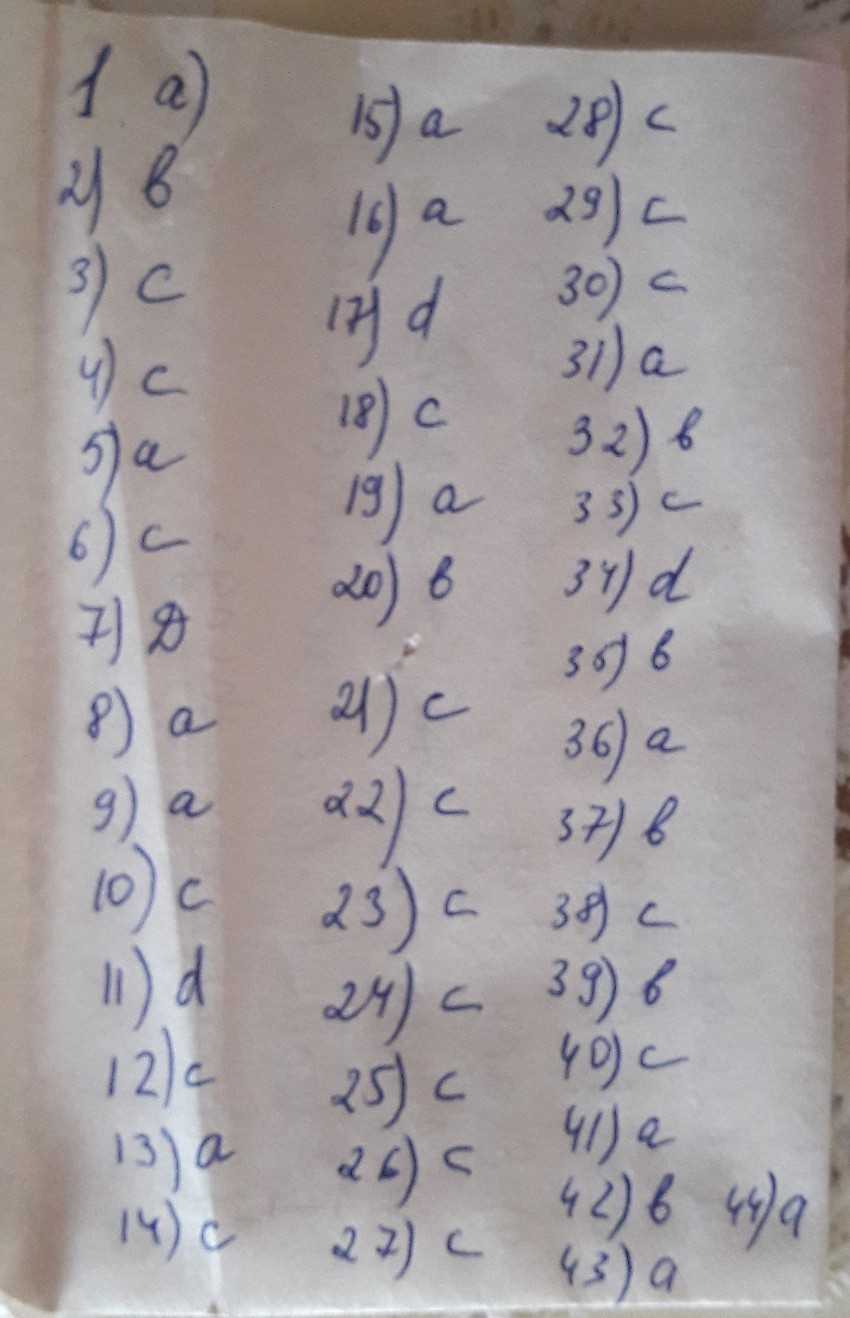 1 a)
2) b
3) c
4) c
5) a
6) c
7) D
8) a
9) a
10) c
11) d
12) c
13) a
14) c
15) a
16) a
17) d
18) c
19) a
20) b
21) c
22) c
23) c
24) c
25) c
26) c
27) c
28) c
29) c
30) c
31) a
32) b
33) c
34) d
35) b
36) a
37) b
38) c
39) b
40) c
41) a
42) b
43) a
44) a